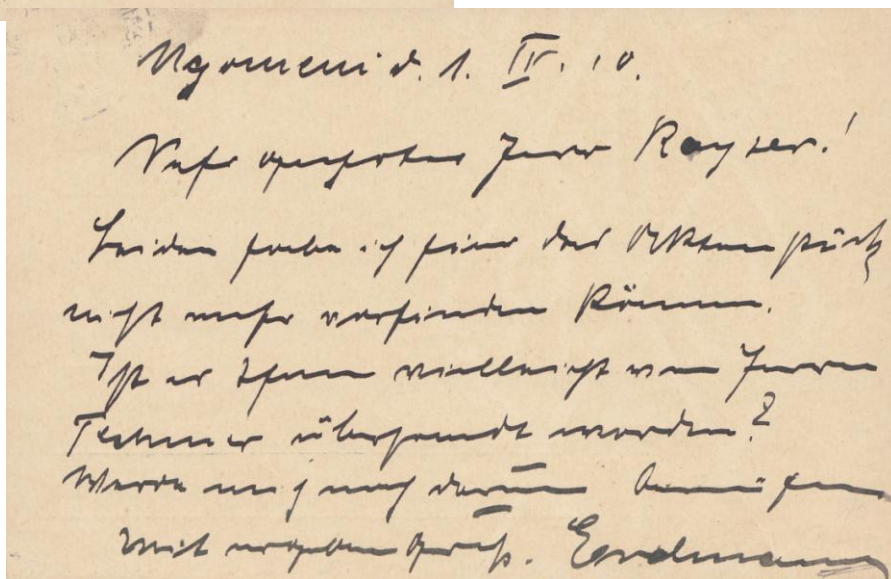 Ngomeni d. 1. IV. 10.
Sehr geehrter Herr Kayser!
Leider habe ich hier das Aktenstück
nicht mehr vorfinden können.
Ist es Ihnen vielleicht von Herrn
übersandt worden?
Werde mich noch darum bemühen
Mit ergeben Gruß. Erdmann